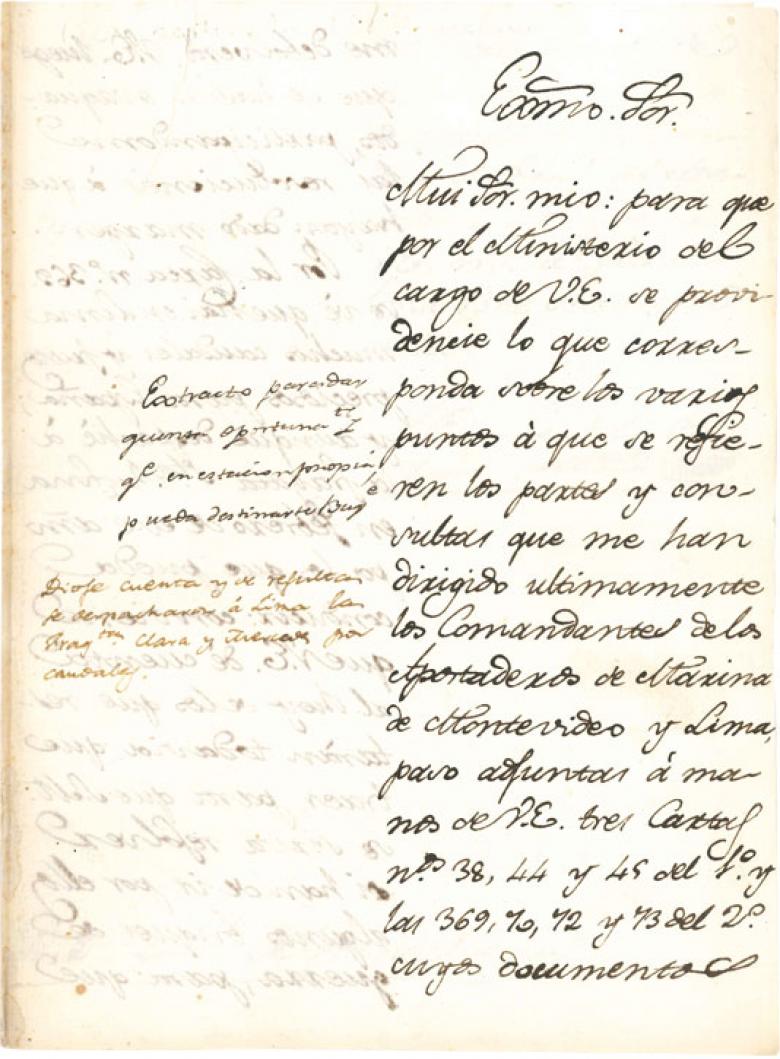 Exmo. Sor.
Mui Sor. mio: para que
por el Ministerio del
cargo de V.E. se provi
dencie lo que corres-
ponda sobre los varios
puntos à que se refie-
ren los partes y con-
sultas que me han
dirigido ultimamente
los Comandantes de los
Apostaderos de Marina
de Montevideo y Lima,
paso adjuntas à ma-
nos de V.E. tres Cartas
nos. 38, 44 y 45 del 1o. y
las 369, 70, 72 y 73 del 2o.
cuyos documentos
Extracto para dar
quenta oportunamte
qe. en estacion
pueda destinarse Buqe
Diose cuenta y de resultas
se despacharon à Lima las
Fragtas Clara y por
caudales.